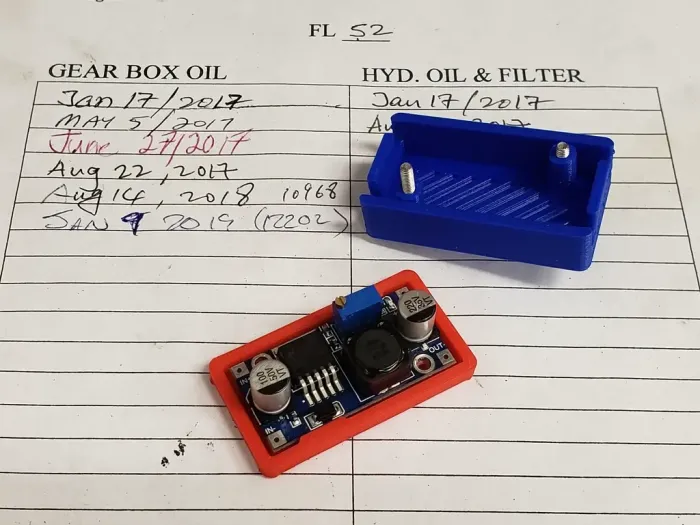 FL 52
GEAR BOX OIL
HYD. OIL & FILTER
Jan 17/2017
Jan 17/2017
MAY 5/2017
June 27/2017
Aug 22, 2017
Aug 14, 2018 10968
JAN 9 2019 (12202)
100
50V
VT
220
35V
VT
IN-
OUT-